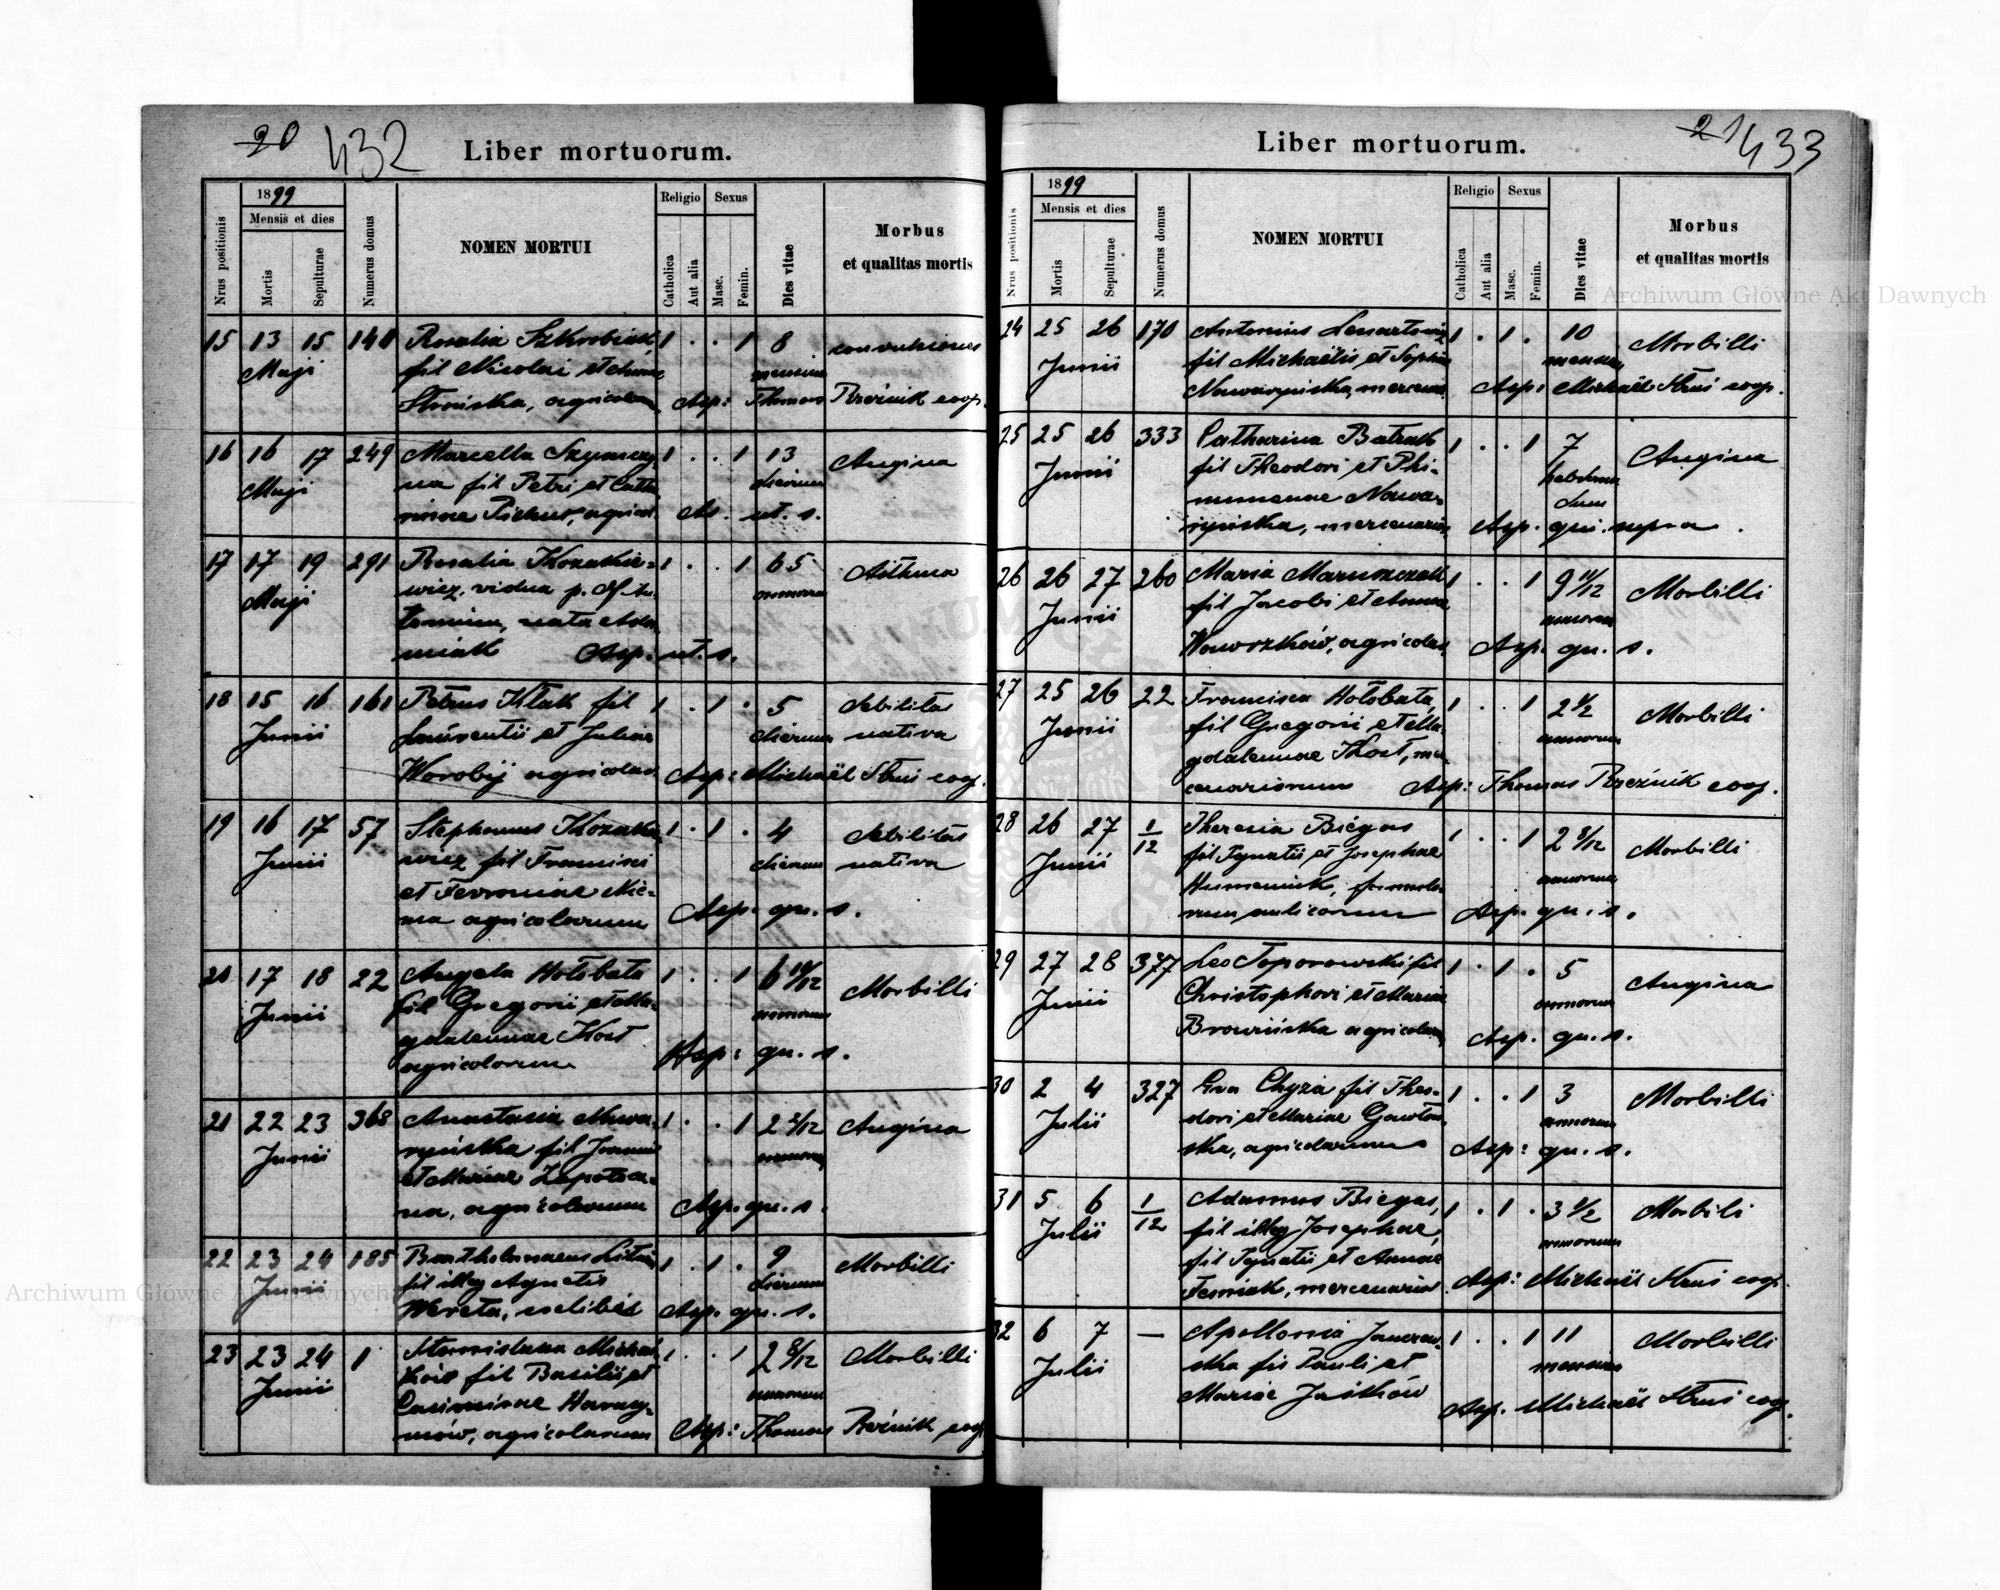 20 432
Liber mortuorum.
Nrus positionis
1899
Mensis et dies
Mortis
Sepulturae
Numerus domus
NOMEN MORTUI
Religio
Catholica
Aut alia
Sexus
Masc.
Femin.
Dies vitae
Morbus
et qualitas mortis
15 13 15 140 Rosalia 1 . . 1 8 convulsiones
Maji fil Nicolai et mensium
agricolarum Asp: Thomas coop.
16 16 17 249 Marcella 1 . . 1 13 Angina
Maji na fil Petri et Catha dierum
rinae ut. s.
17 17 19 291 Rosalia Kozakie= 1 . . 1 65 Asthma
Maji wicz, vidua p. annorum
nata
niak Asp: ut. s.
18 15 16 161 Petrus Kłak fil 1 . 1 . 5 debilitas
Junii Laurentii et Juliae dierum nativa
Worobij agricolar. Asp: Michaël coop.
19 16 17 57 Stephanus Kozakie 1 . 1 . 4 debilitas
Junii wicz fil Francisci dierum nativa
et Feroniae Nie=
ma agricolarum Asp. qu. s.
20 17 18 22 Angela Hołobata 1 . . 1 6 10/12 Morbilli
Junii fil Gregorii et Ma= annorum
gdalennae Kost
agricolarum Asp: qu. s.
21 22 23 368 Anastasia Nawa= 1 . . 1 2 2/12 Angina
Junii ryńska fil Joannis annorum
et Mariae
na, agricolarum Asp. qu. s.
22 23 24 185 Bartholomaeus 1 . 1 . 9 Morbilli
Junii fil illeg Agnetis dierum
Wereta, caelibis Asp. qu. s.
23 23 24 1 1 . . 1 2 8/12 Morbilli
Junii fil Basilii et annorum
Casimirae
agricolarum Asp: Thomas coop
21 433
Liber mortuorum.
Nrus positionis
1899
Mensis et dies
Mortis
Sepulturae
Numerus domus
NOMEN MORTUI
Religio
Catholica
Aut alia
Sexus
Masc.
Femin.
Dies vitae
Morbus
et qualitas mortis
24 25 26 170 Antonius 1 . 1 . 10 Morbilli
Junii fil Michaëlis et Sophiae mensium
Nawaryńska, mercenar. Asp: Michaël coop.
25 25 26 333 Catharina Batrak 1 . . 1 7 Angina
Junii fil Theodori et Phi= hebdoma
mumenae Nawa= dum
ryńska, mercenarior. Asp. qui supra.
26 26 27 260 Maria 1 . . 1 9 11/12 Morbilli
Junii fil Jacobi et Annae annorum
agricolar. Asp. qu. s.
27 25 26 22 Francisca Hołobata, 1 . . 1 2 1/2 Morbilli
Junii fil Gregorii et Ma= annorum
gdalennae Kost, me
cenariorum Asp: Thomas coop.
28 26 27 1/12 Theresia Biegas 1 . . 1 2 3/12 Morbilli
Junii fil Ignatii et Josephae annorum
Humeniuk, famulo=
rum aulicorum Asp. qu. s.
29 27 28 377 Leo Toporowski fil 1 . 1 . 5 Angina
Junii Christophori et Mariae annorum
agricolar. Asp. qu. s.
30 2 4 327 Eva Chyza fil Theo= 1 . . 1 3 Morbilli
Julii dori et Mariae annorum
ska, agricolarum Asp: qu. s.
31 5 6 1/12 Adamus Biegas, 1 . 1 . 3 1/2 Morbili
Julii fil illeg Josephae, annorum
fil Ignatii et Annae
mercenarior. Asp: Michaël coop.
32 6 7 — Apollonia 1 . . 1 11 Morbilli
Julii ska fil Pauli et mensium
Mariae Jaśków Asp. Michaël coop.
Archiwum Główne Akt Dawnych
Archiwum Główne Akt Dawnych